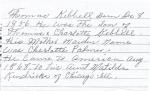 Thomas Kibbell Born Dec 8
1856. He was the son of
Thomas & Charlotte Kibbell
His Mother Maiden Name
was Charlotte Palmer.
He Came to America Aug
1875 to his Aunt Matilda
Kendricks of Chicago Ill.